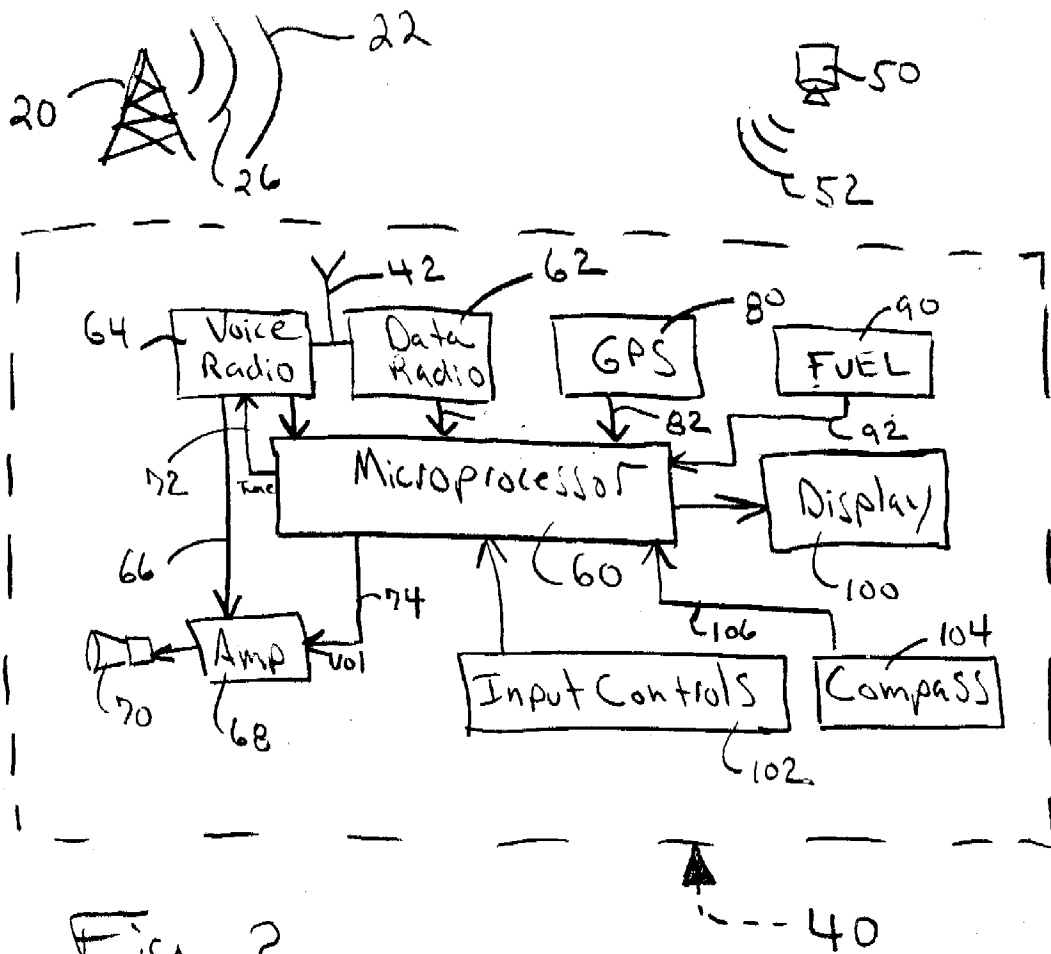 22
20
26
50
52
42
62
64
Voice
Radio
Data
Radio
80
GPS
90
FUEL
82
92
72
Tune
Microprocessor
60
Display
100
66
74
106
104
Amp
Vol
70
68
Input Controls
102
Compass
40
Fig. 2